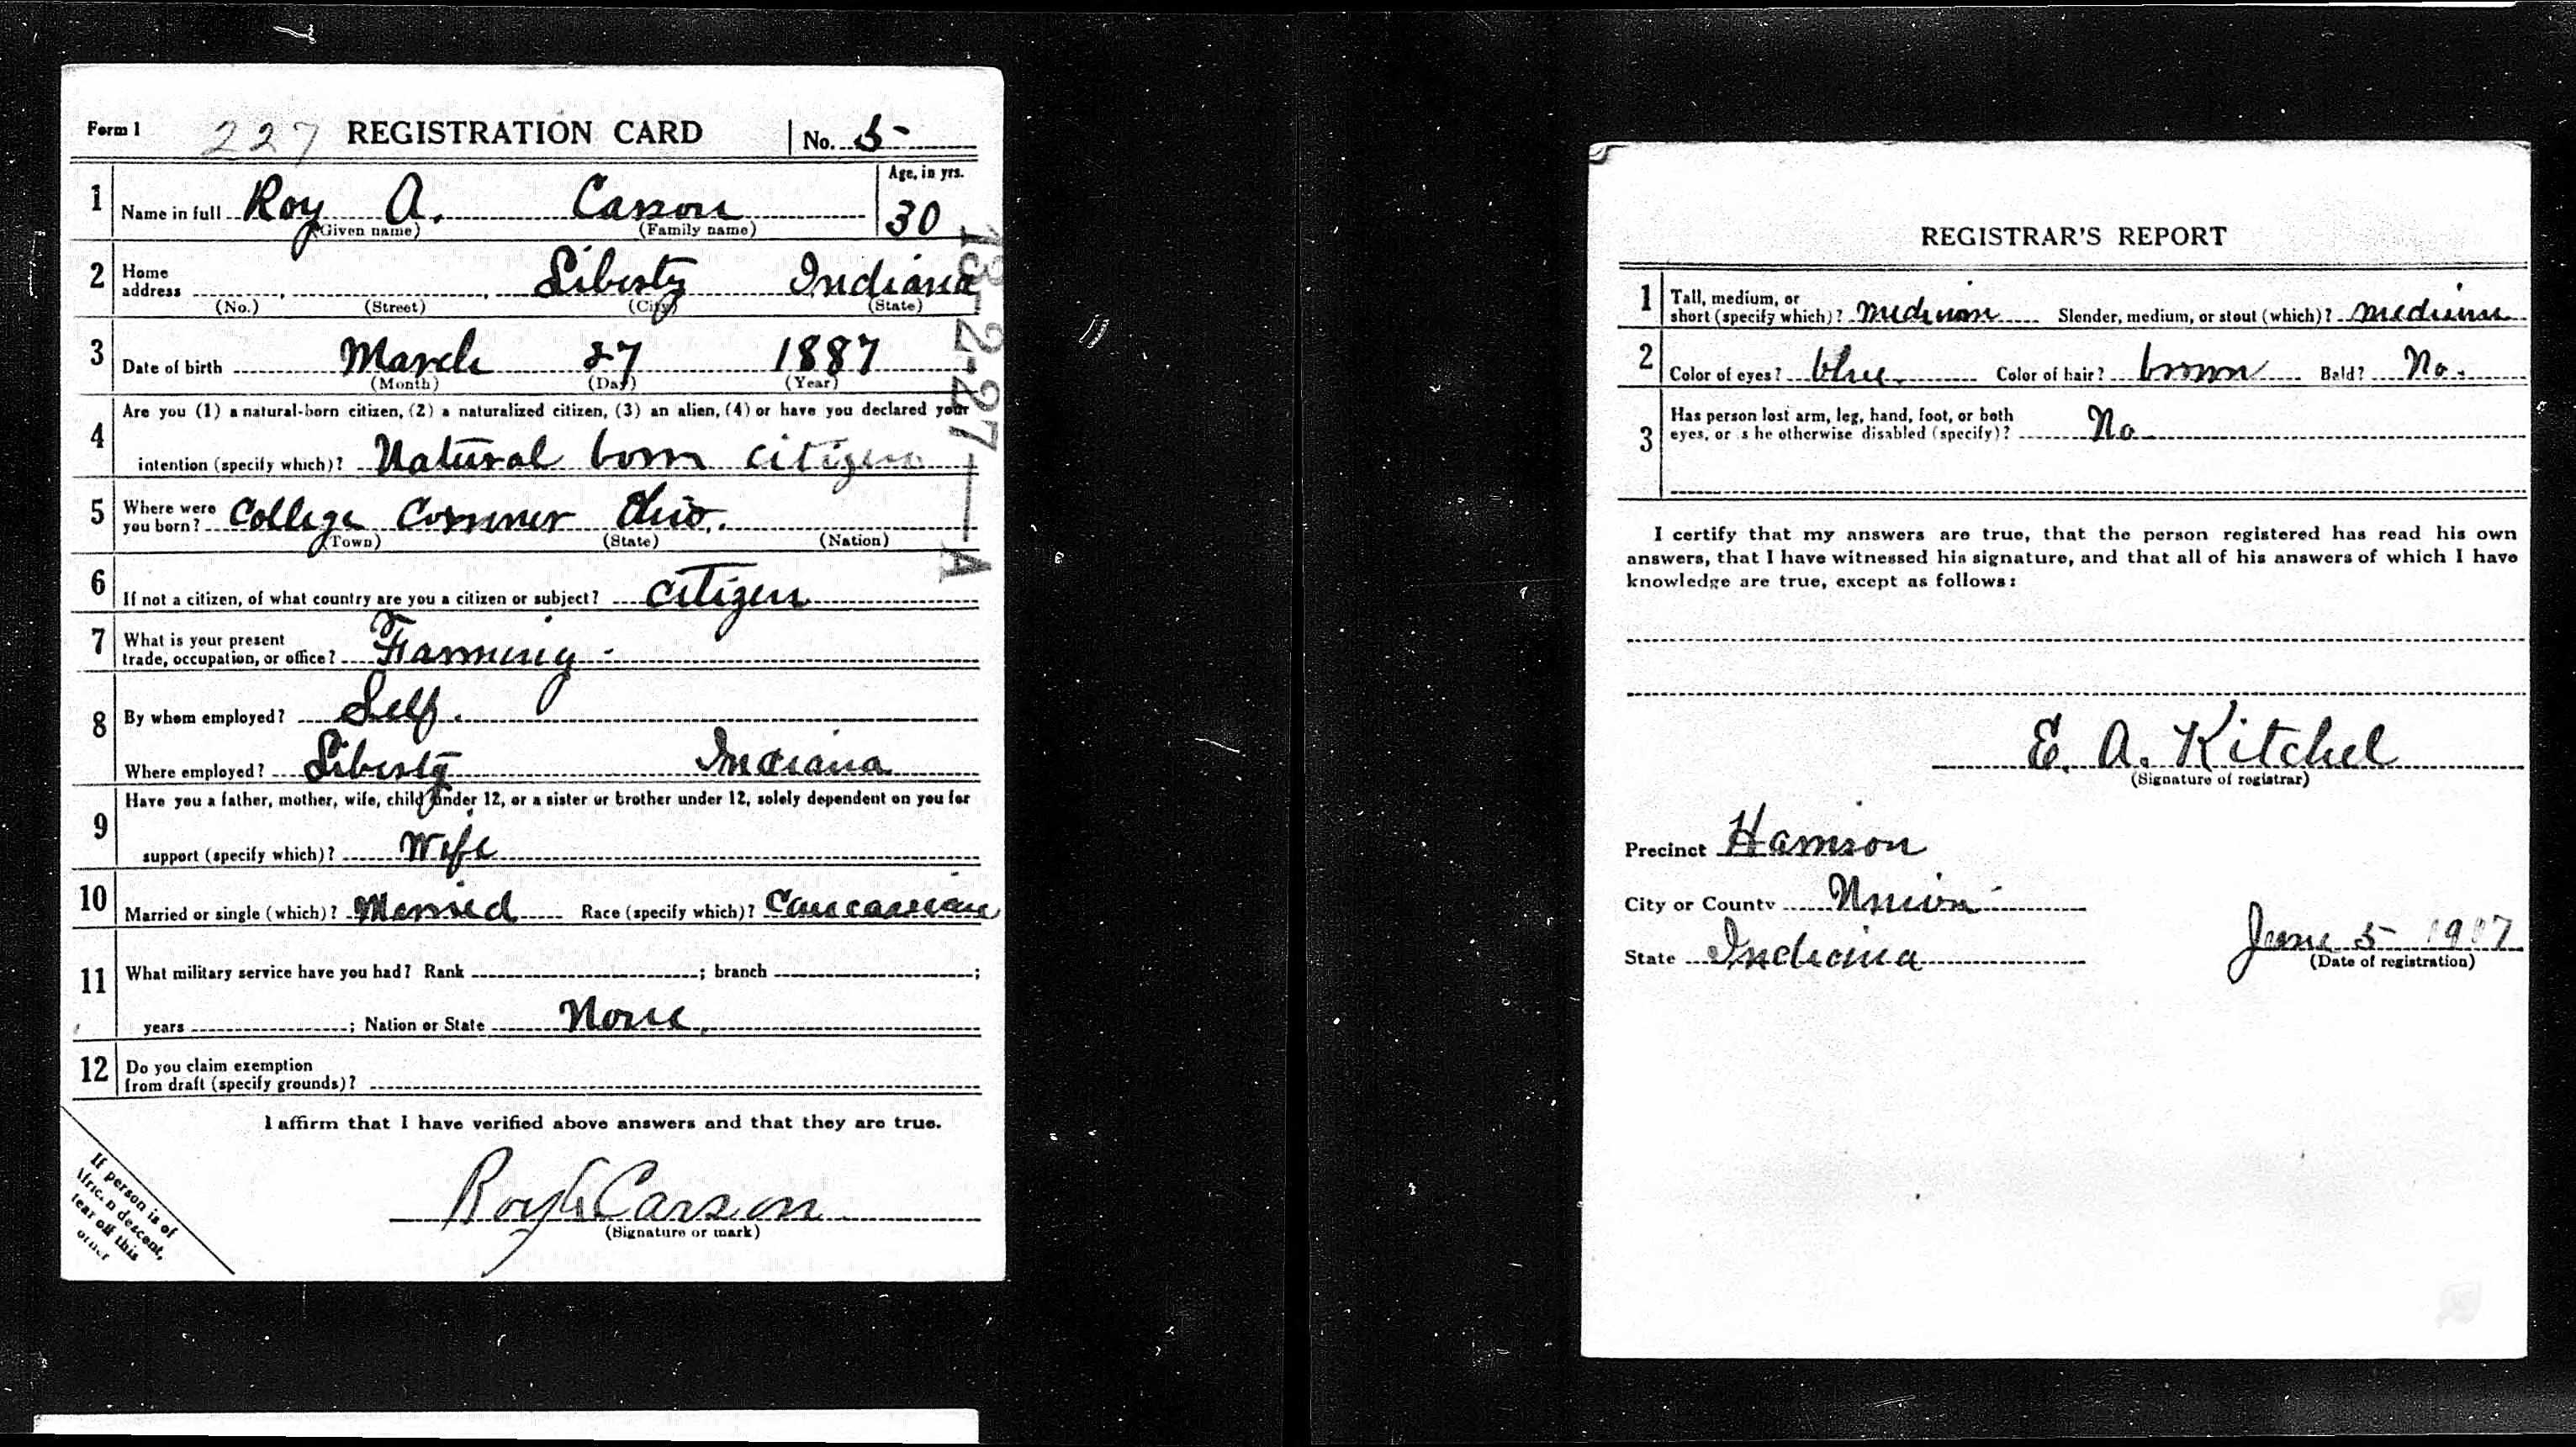 Form 1 227 REGISTRATION CARD No. 5
1 Name in full Roy A. Carson Age, in yrs. 30
(Given name) (Family name)
2 Home address Liberty Indiana
(No.) (Street) (City) (State)
3 Date of birth March 27 1887
(Month) (Day) (Year)
4 Are you (1) a natural-born citizen, (2) a naturalized citizen, (3) an alien, (4) or have you declared your
intention (specify which)? Natural born citizen
5 Where were you born? College Corner Ohio.
(Town) (State) (Nation)
6 If not a citizen, of what country are you a citizen or subject? citizen
7 What is your present trade, occupation, or office? Farming
8 By whom employed? Self.
Where employed? Liberty Indiana
9 Have you a father, mother, wife, child under 12, or a sister or brother under 12, solely dependent on you for
support (specify which)? Wife
10 Married or single (which)? Married Race (specify which)? Caucasian
11 What military service have you had? Rank ; branch ;
years ; Nation or State None
12 Do you claim exemption
from draft (specify grounds)?
I affirm that I have verified above answers and that they are true.
Roy A Carson
(Signature or mark)
If person is of
African descent,
tear off this
corner
13-2-27-A
REGISTRAR'S REPORT
1 Tall, medium, or
short (specify which)? medium Slender, medium, or stout (which)? medium
2 Color of eyes? blue Color of hair? brown Bald? No.
3 Has person lost arm, leg, hand, foot, or both
eyes, or is he otherwise disabled (specify)? No
I certify that my answers are true, that the person registered has read his own
answers, that I have witnessed his signature, and that all of his answers of which I have
knowledge are true, except as follows:
E. A. Kitchel
(Signature of registrar)
Precinct Harrison
City or County Union
State Indiana June 5 1917
(Date of registration)